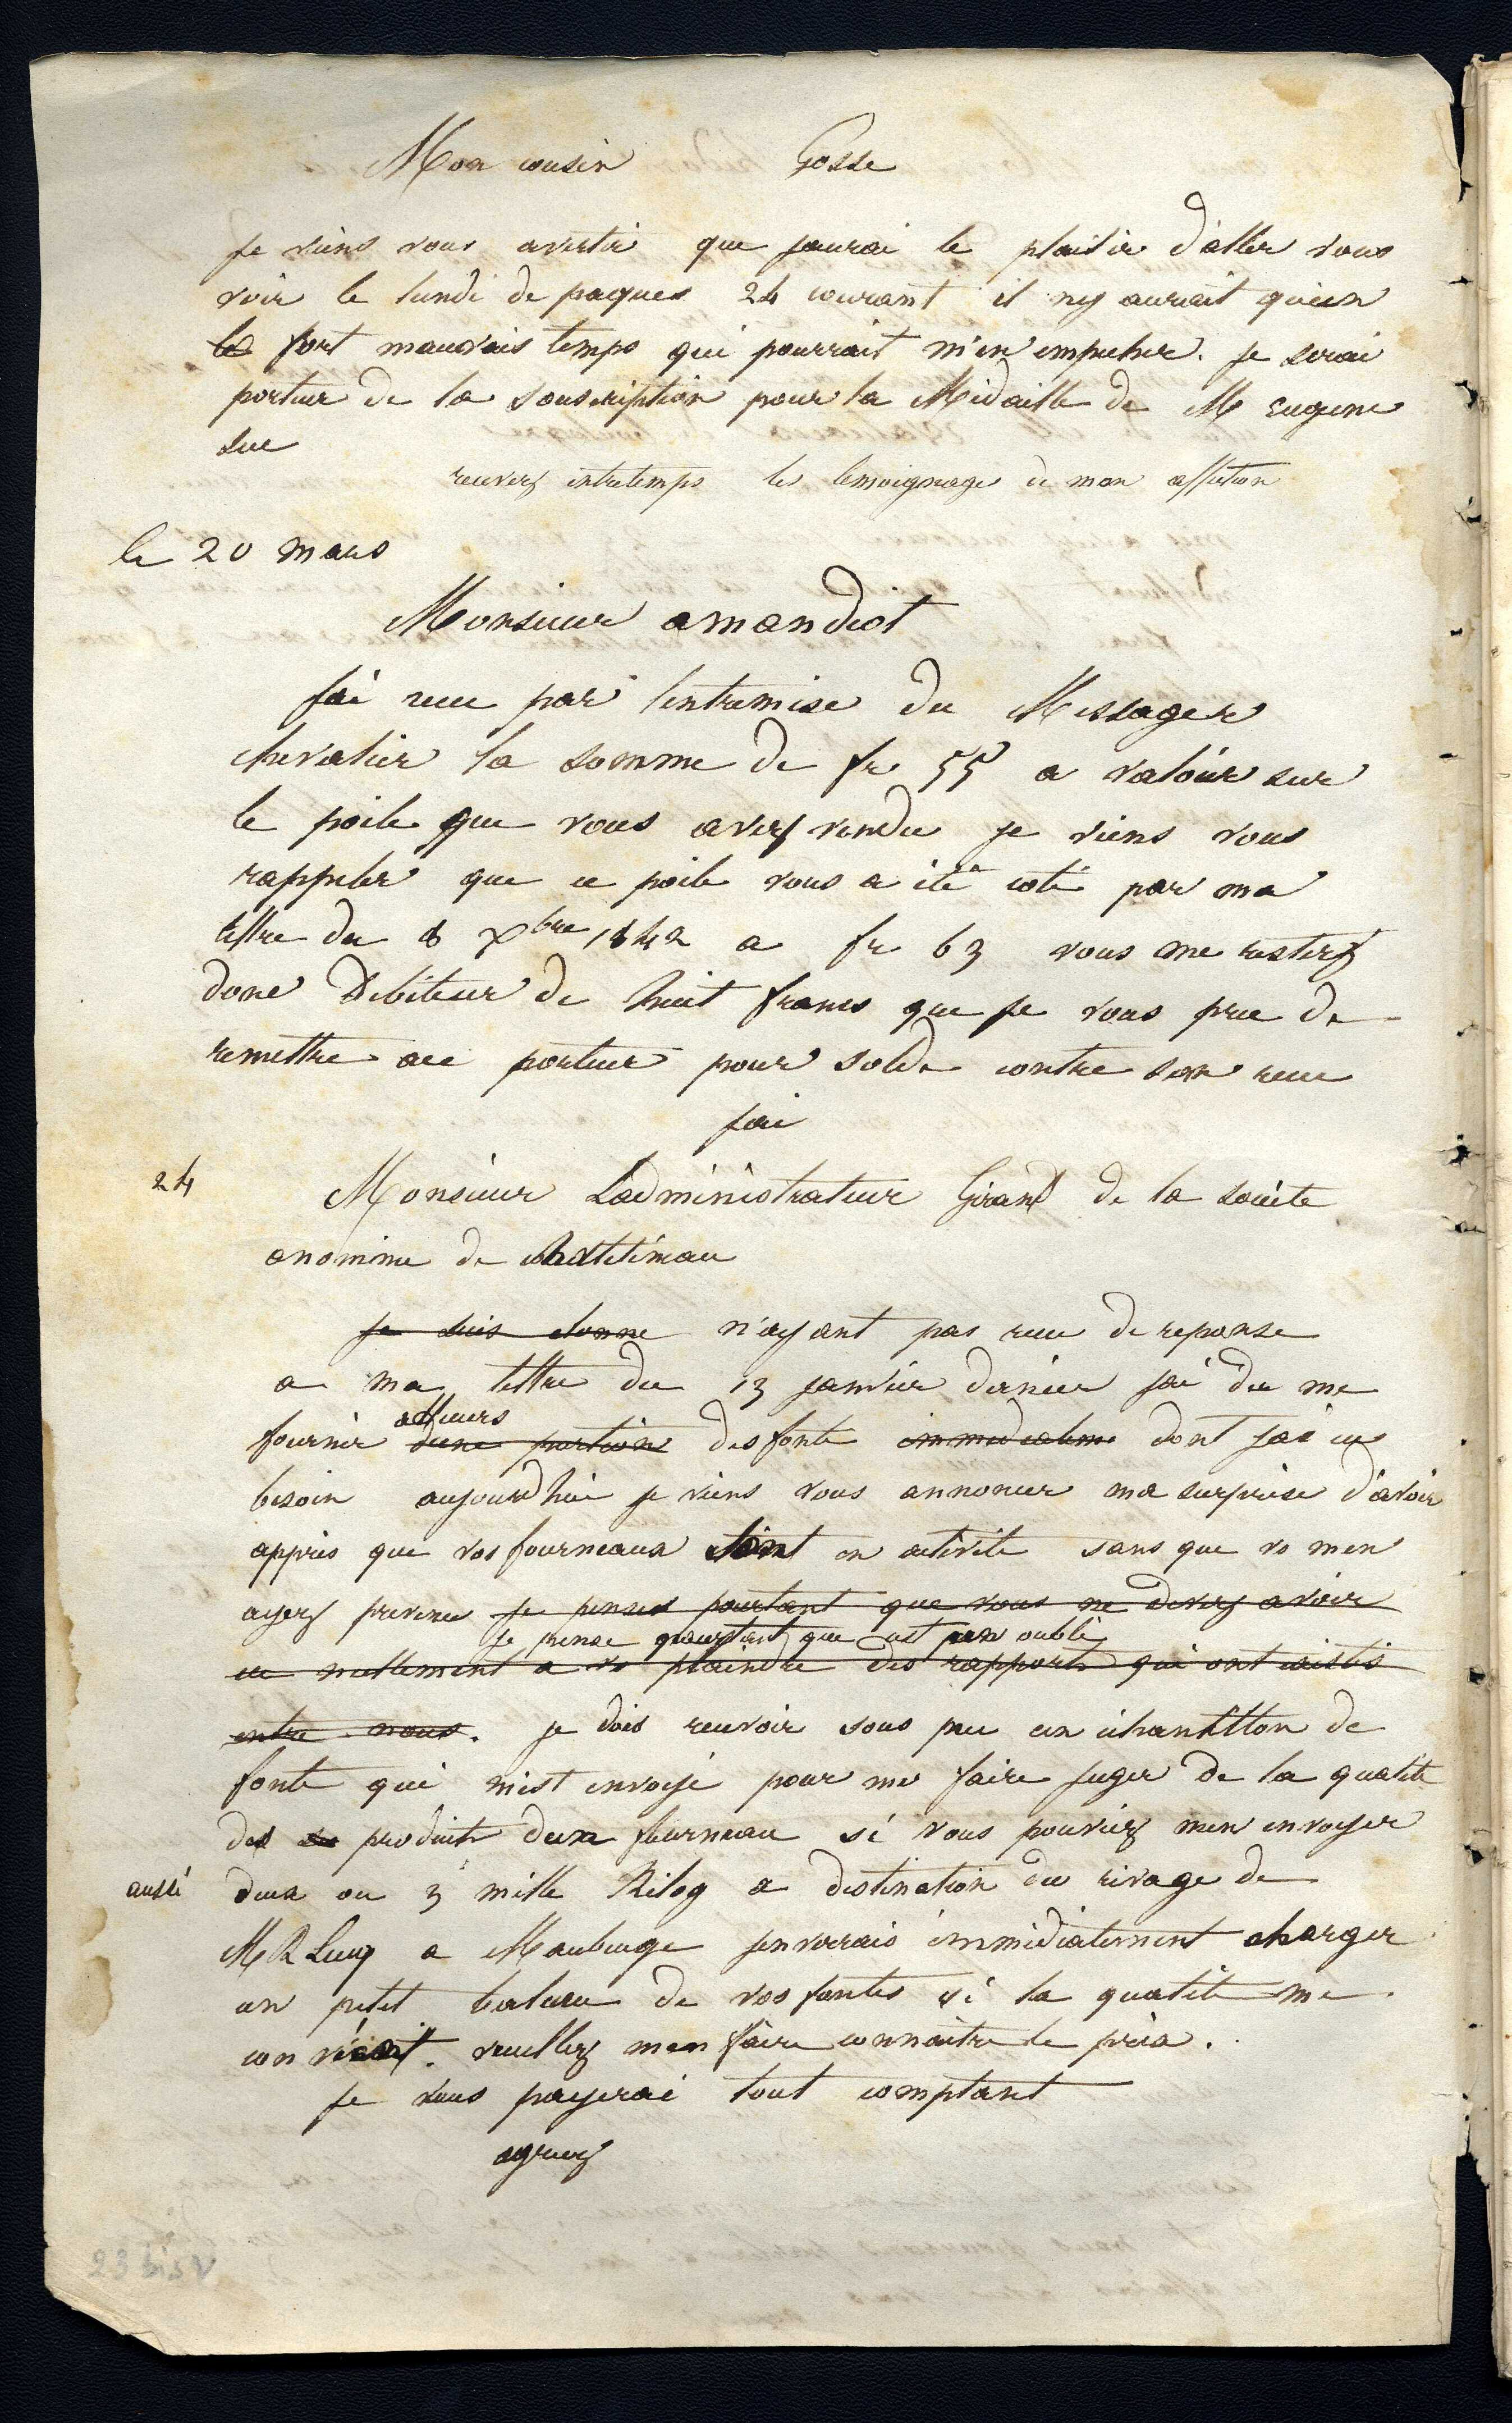 Mon cousin Gosse
je viens vous avertir que jaurai le plaisir d'aller vous
voir le lundi de paques 24 courant il ny aurait qu'un
le fort mauvais temps qui pourrait m'en empecher. je serai
porteur de la souscription pour la Médaille de M Eugene
Sue
recevez entretemps les temoignage de mon affection
le 20 mars
Monsieur amandiot
jái recu par lentremise du Messager
chevalier la somme de fr 55 a valoir sur
le poile que vous avez vendu je viens vous
rappeler que ce poile vous a été coté par ma
lettre du 8 Xbre 1842 a fr 63 vous me restez
donc Debiteur de huit francs que je vous prie de
remettre au porteur pour solde contre son recu
jai
24 Monsieur Ladministrateur Gérant de la société
anonime de chatelineau
je suis etonne n'ayant pas recu de reponse
a ma lettre du 13 janvier dernier jai du me
fournir ailleurs dune portion des fonte immediatem dont jai eu
besoin aujourdhui je viens vous annoncer ma surprise d'avoir
appris que vos fourneaux étaient en activité sans que vs men
ayez prevenu je pensais pourtant que vous ne devez avoir
je pense pourtant que cest un oubli
eu nullement a vs plaindre des rapports qui ont existés
entre nous. je dois recevoir sous peu un échantillon de
fonte qui m'est envoyé pour me faire juger de la qualité
des produits dun fourneau si vous pouviez men envoyer
aussi deux ou 3 mille Kilog a destination du rivage de
M R Lucq a Maubeuge jenverrais immédiatement charger
un petit bateau de vos fontes si la qualité me
convient. veuillez men faire connaitre le prix.
je vous payerai tout comptant
agreez
23 bis v